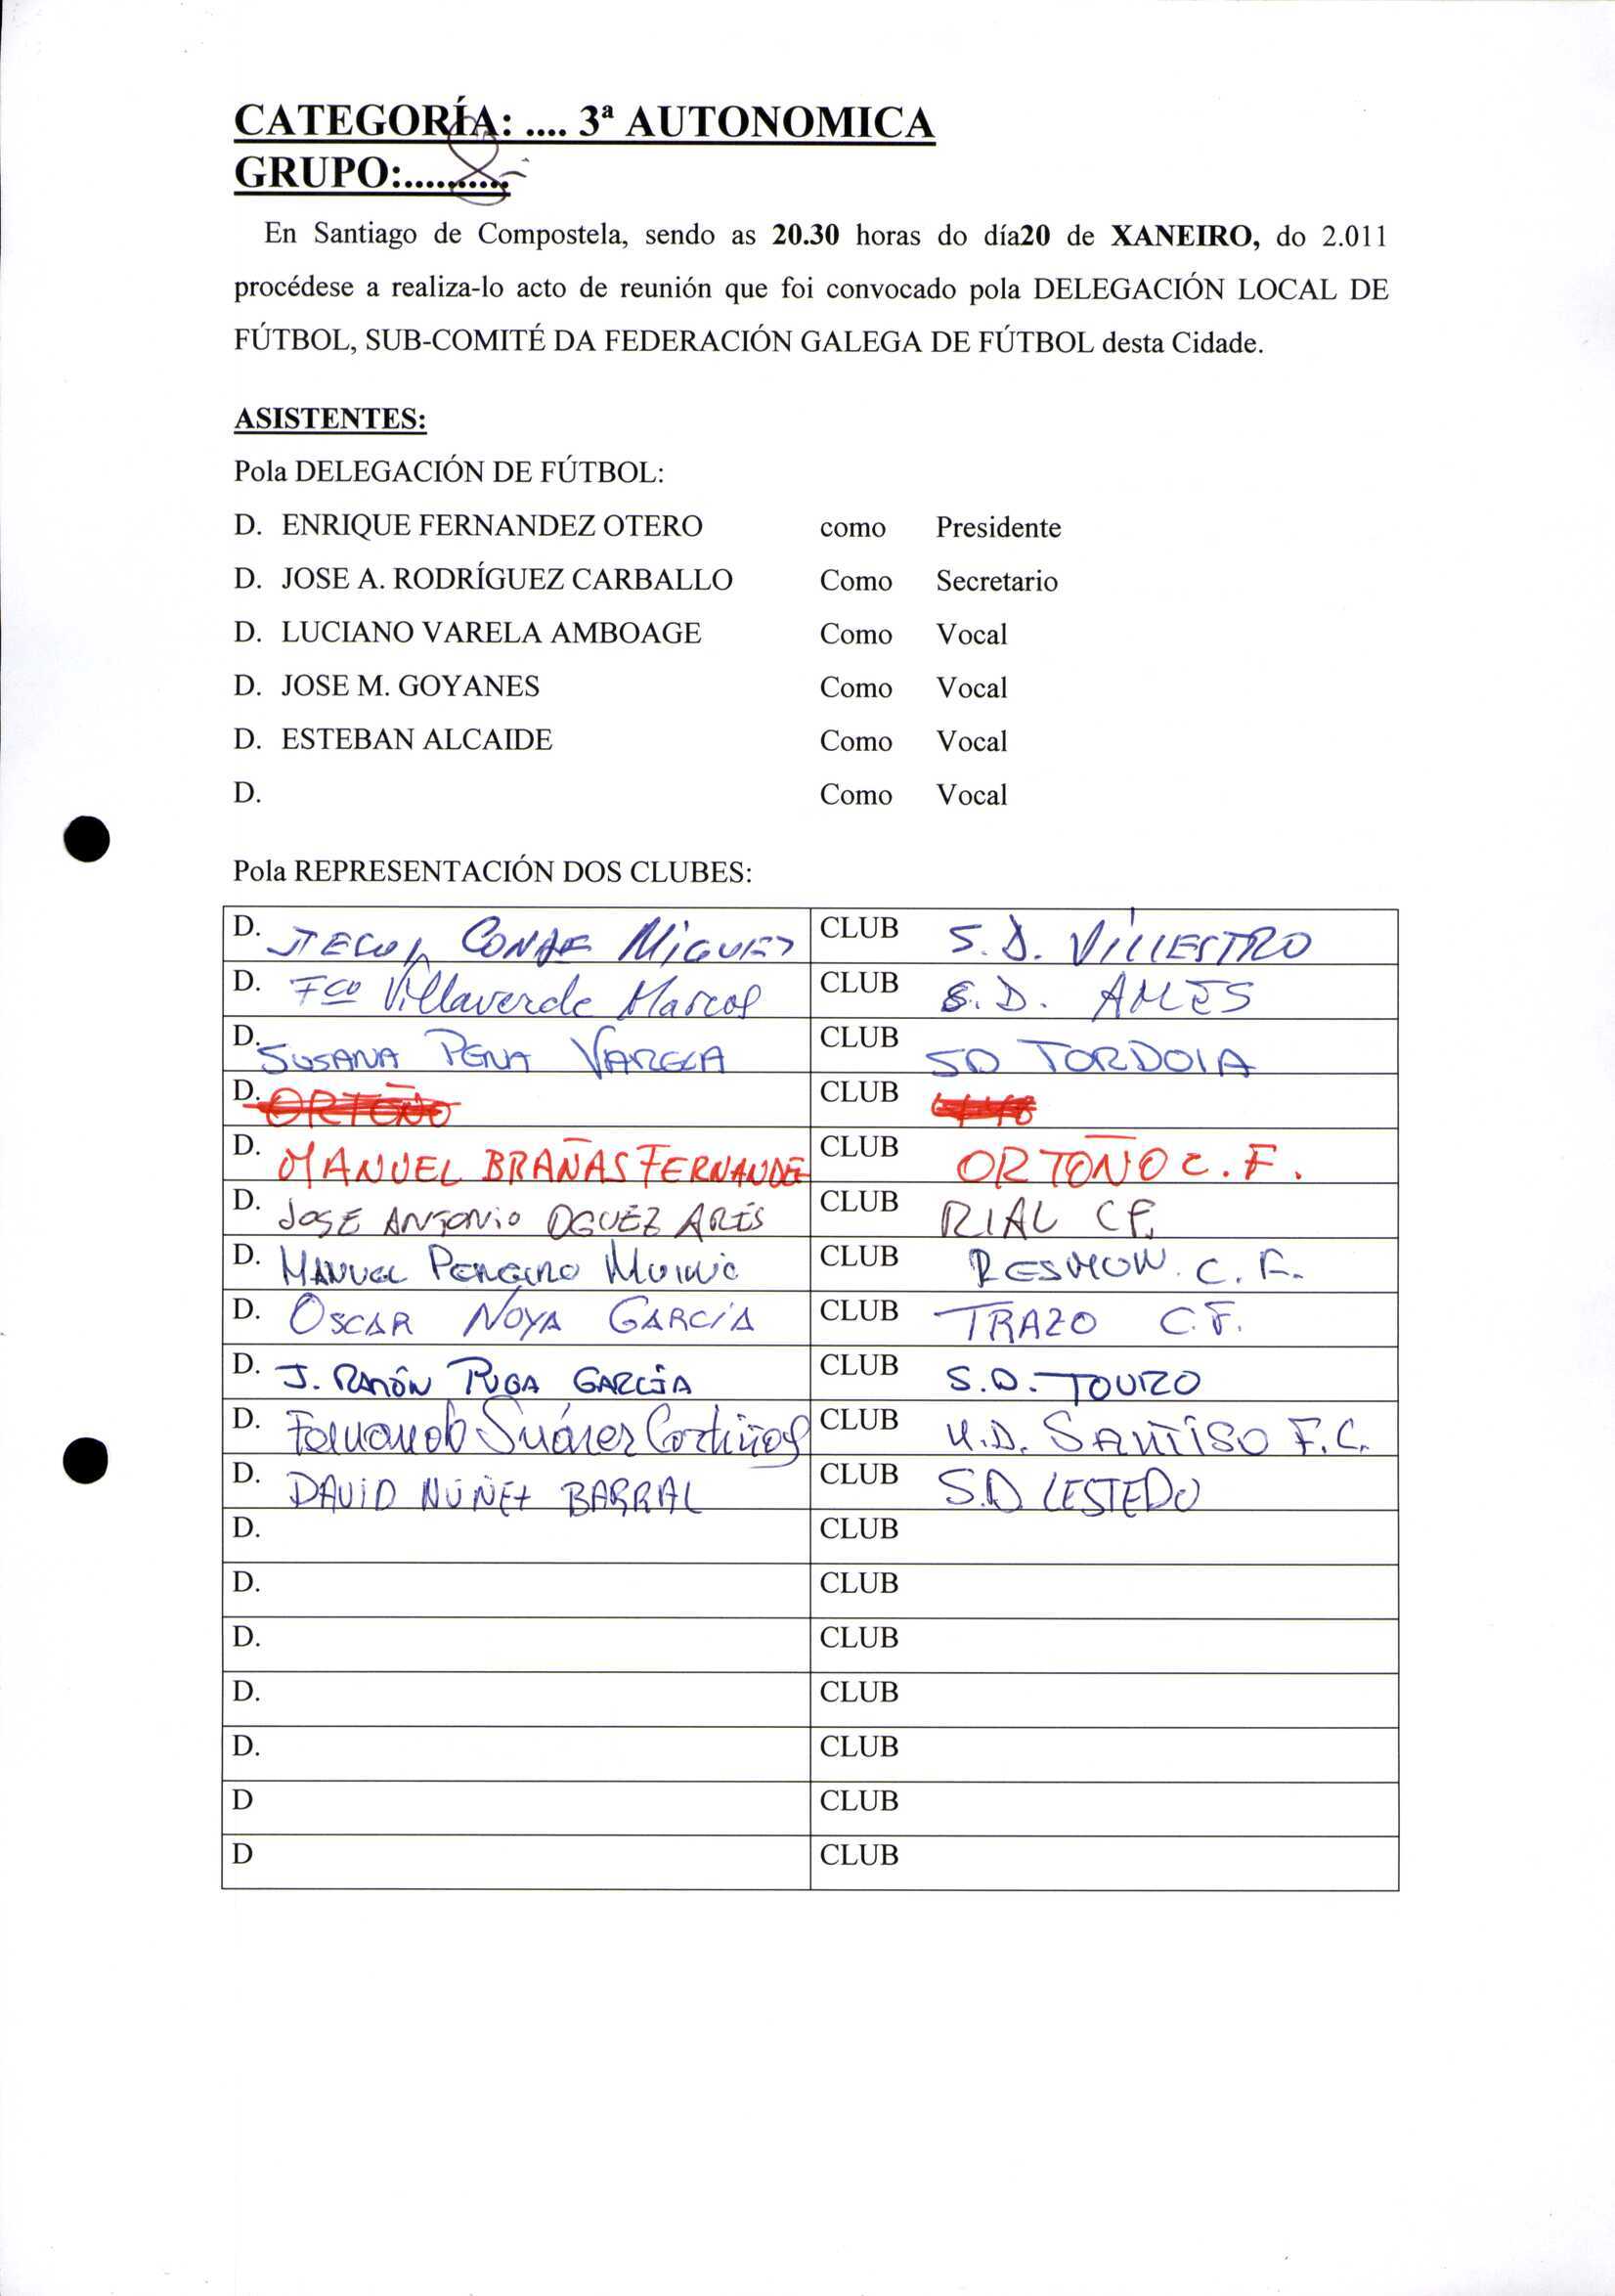 CATEGORÍA: .... 3ª AUTONOMICA
GRUPO:.......... 8
En Santiago de Compostela, sendo as 20.30 horas do día20 de XANEIRO, do 2.011
procédese a realiza-lo acto de reunión que foi convocado pola DELEGACIÓN LOCAL DE
FÚTBOL, SUB-COMITÉ DA FEDERACIÓN GALEGA DE FÚTBOL desta Cidade.
ASISTENTES:
Pola DELEGACIÓN DE FÚTBOL:
D. ENRIQUE FERNANDEZ OTERO como Presidente
D. JOSE A. RODRÍGUEZ CARBALLO Como Secretario
D. LUCIANO VARELA AMBOAGE Como Vocal
D. JOSE M. GOYANES Como Vocal
D. ESTEBAN ALCAIDE Como Vocal
D. Como Vocal
Pola REPRESENTACIÓN DOS CLUBES:
D. CONDE MIGUEZ CLUB S.D. VILLESTRO
D. Fco Villaverde Marcos CLUB S.D. AMES
D. SUSANA PENA VARELA CLUB SD TORDOIA
D. ORTOÑO CLUB
D. MANUEL BRAÑAS FERNANDE CLUB ORTOÑO C.F.
D. JOSE ANTONIO OGUEZ ARES CLUB RIAL CF.
D. MANUEL CLUB RESMON. C.F.
D. OSCAR NOYA GARCÍA CLUB TRAZO C.F.
D. J. RAMÓN PUGA GARCÍA CLUB S.D. TOURO
D. Fernando Suárez Cortiñas CLUB U.D. SANTISO F.C.
D. DAVID NÚÑEZ BARRAL CLUB S.D. LESTEDO
D. CLUB
D. CLUB
D. CLUB
D. CLUB
D. CLUB
D CLUB
D CLUB